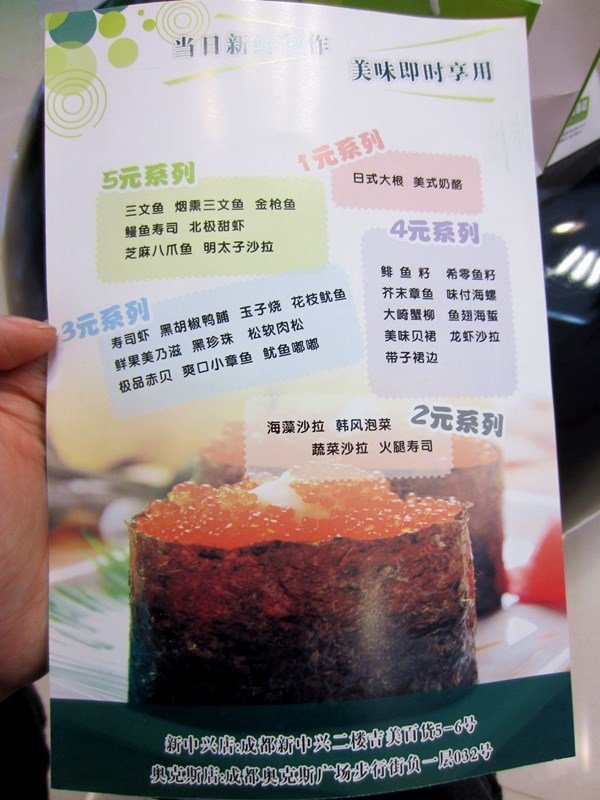 当日新鲜制作
美味即时享用
1元系列
日式大根 美式奶酪
5元系列
三文鱼 烟熏三文鱼 金枪鱼
鳗鱼寿司 北极甜虾
芝麻八爪鱼 明太子沙拉
4元系列
鲱鱼籽 希零鱼籽
芥末章鱼 味付海螺
大崎蟹柳 鱼翅海蜇
美味贝裙 龙虾沙拉
带子裙边
3元系列
寿司虾 黑胡椒鸭脯 玉子烧 花枝鱿鱼
鲜果美乃滋 黑珍珠 松软肉松
极品赤贝 爽口小章鱼 鱿鱼嘟嘟
2元系列
海藻沙拉 韩风泡菜
蔬菜沙拉 火腿寿司
新中兴店:成都新中兴二楼吉美百货5-6号
奥克斯店:成都奥克斯广场步行街负一层032号